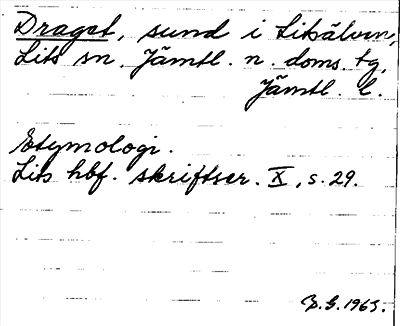 Draget, sund i Litsälven,
Lits sn. Jämtl. n. doms. tg,
Jämtl. l.
Etymologi.
Lits hbf. skriftser. X, s. 29.
1965.